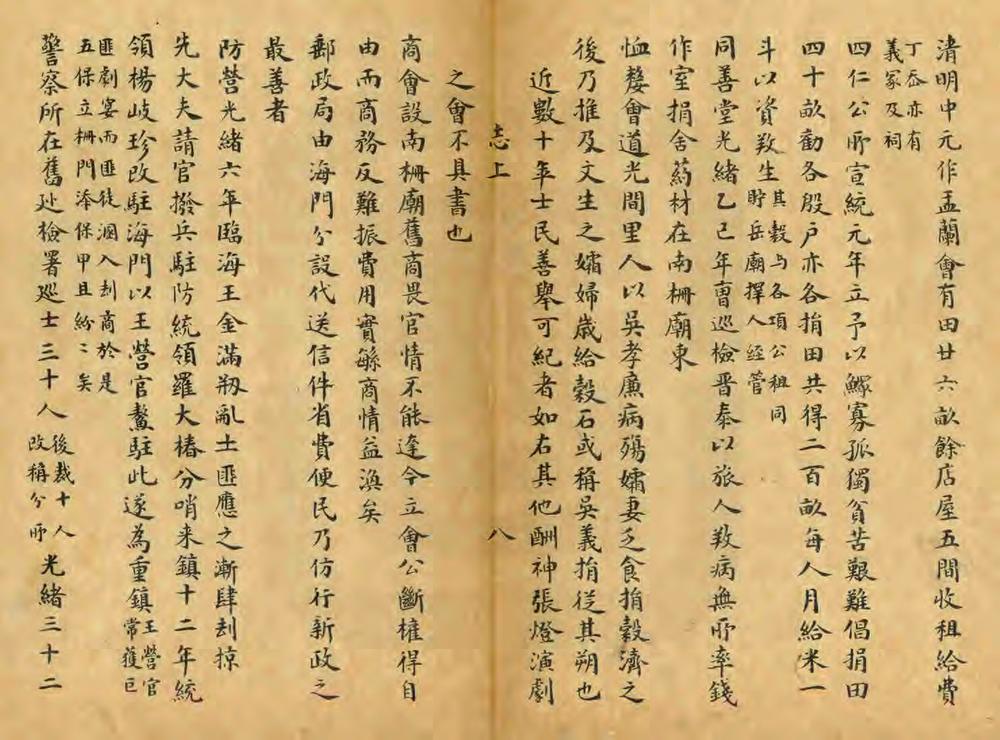 清明中元作盂蘭會有田廿六畝餘店屋五間收租給費
丁岙亦有
義冢及祠
四仁公所宣統元年立予以鰥寡孤獨貧苦艱難倡捐田
四十畝勸各殷戶亦各捐田共得二百畝每人月給米一
斗以資救生
其穀与各項公租同
貯岳廟擇人經管
同善堂光緒乙巳年曹巡檢晋泰以旅人救病無所率錢
作室捐舍葯材在南柵廟東
恤嫠會道光間里人以吳孝廉病殤孀妻乏食捐穀濟之
後乃推及文生之孀婦歲給穀石或稱吳義捐從其朔也
近數十年士民善舉可紀者如右其他酬神張燈演劇
志上
八
之會不具書也
商會設南柵廟舊商畏官情不能達今立會公斷權得自
由而商務反難振費用實緐商情益渙矣
郵政局由海門分設代送信件省費便民乃仿行新政之
最善者
防營光緒六年臨海王金滿刱亂土匪應之漸肆刦掠
先大夫請官撥兵駐防統領羅大椿分哨来鎮十二年統
領楊岐珍改駐海門以王營官鰲駐此遂為重鎮
王營官
常獲巨
匪劇宴而匪徒溷入刦商於是
五保立柵門添保甲且紛〻矣
警察所在舊巡檢署巡士三十人
後裁十人
改稱分所
光緒三十二